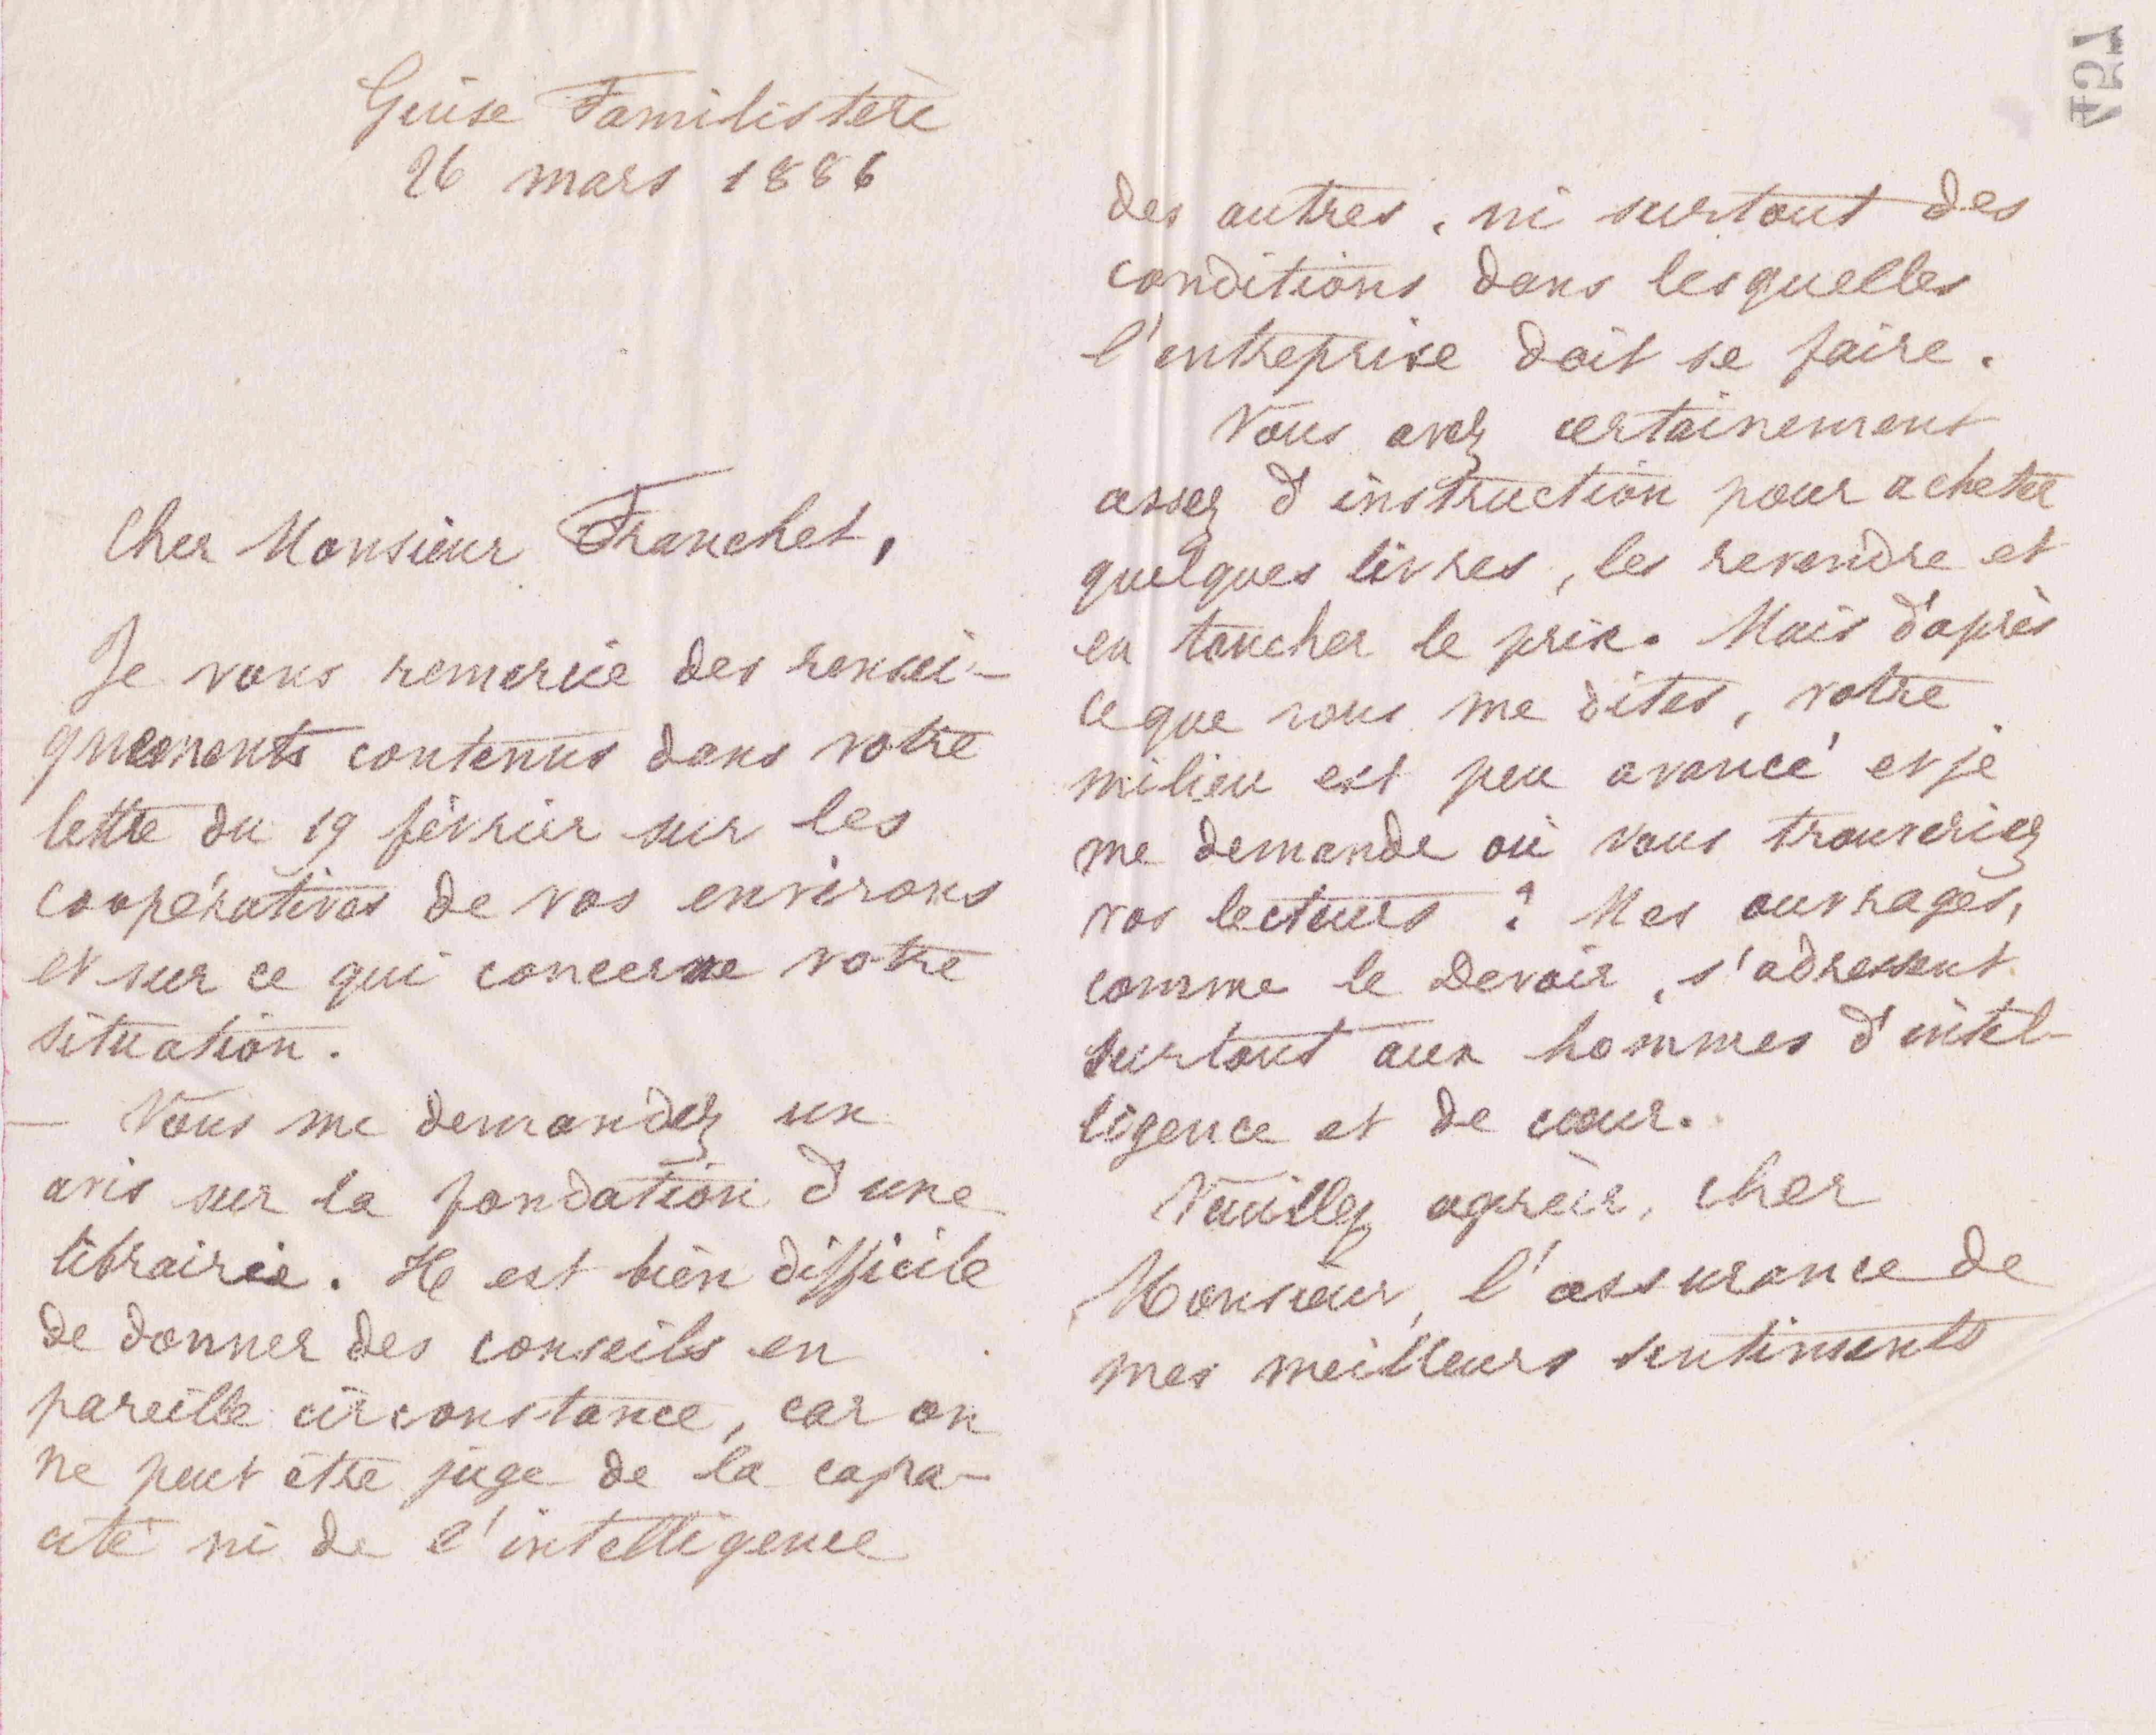 Guise Familistère
26 mars 1886
Cher Monsieur Franchet,
Je vous remercie des rensei-
gnements contenus dans votre
lettre du 19 février sur les
coopératives de vos environs
et sur ce qui concerne votre
situation.
— Vous me demandez un
avis sur la fondation d'une
librairie. Il est bien difficile
de donner des conseils en
pareille circonstance, car on
ne peut être juge de la capa-
cité ni de l'intelligence
457
des autres, ni surtout des
conditions dans lesquelles
l'entreprise doit se faire.
Vous avez certainement
assez d'instruction pour acheter
quelques livres, les revendre et
en toucher le prix. Mais d'après
ce que vous me dites, votre
milieu est peu avancé et je
me demande où vous trouveriez
vos lecteurs ? Mes ouvrages,
comme le Devoir, s'adressent
surtout aux hommes d'intel-
ligence et de cœur.
Veuillez agréer, cher
Monsieur, l'assurance de
mes meilleurs sentiments